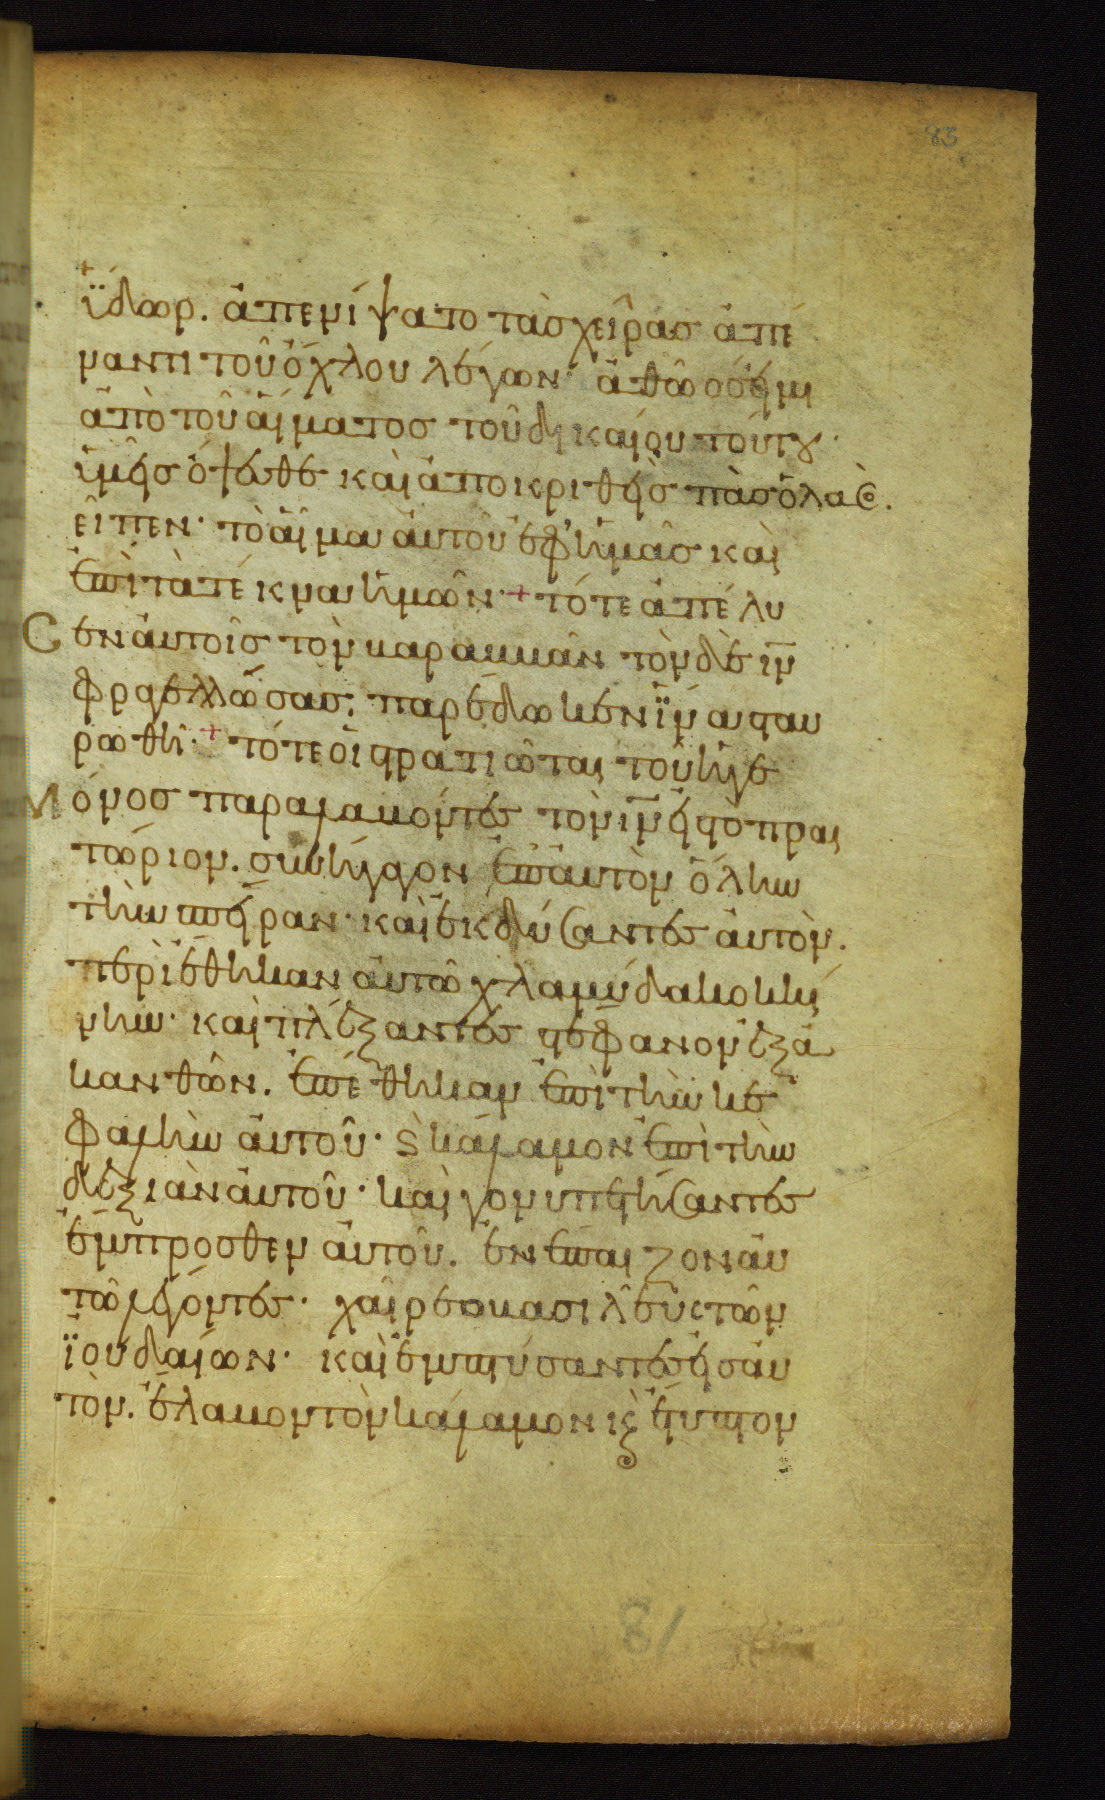 83
ὕδωρ. ἀπενίψατο τὰς χεῖρας ἀπέ
ναντι τοῦ ὄχλου λέγων· ἀθῶός εἰμι
ἀπὸ τοῦ αἵματος τοῦ δικαίου τούτου·
ὑμεῖς ὄψεσθε καὶ ἀποκριθεὶς πᾶς ὁ λαὸς.
εἶπεν· τὸ αἷμα αὐτοῦ ἐφ' ἡμᾶς καὶ
ἐπὶ τὰ τέκνα ἡμῶν· + τότε ἀπέλυ
σεν αὐτοῖς τὸν βαραββᾶν τὸν δὲ ιν
φραγελλώσας· παρέδωκεν ἵνα σταυ
ρωθῆ· + τότε οἱ στρατιῶται τοῦ ἡγε
μόνος παραλαβόντες τὸν ιν εἰς τὸ πραι
τώριον. συνήγαγον ἐπ' αὐτὸν ὅλην
τὴν σπεῖραν· καὶ ἐκδύσαντες αὐτὸν.
περιέθηκαν αὐτῶ χλαμύδα κοκκί
νην· καὶ πλέξαντες στέφανον ἐξ ἀ
κανθῶν. ἐπέθηκαν ἐπὶ τὴν κε
φαλὴν αὐτοῦ· ϛ κάλαμον ἐπὶ τὴν
δεξιὰν αὐτοῦ· καὶ γονυπετήσαντες
ἔμπροσθεν αὐτοῦ. ἐνέπαιζον αὐ
τῶ λέγοντες· χαῖρε ὁ βασιλεὺς τῶν
ἰουδαίων· καὶ ἐμπτύσαντες εἰς αὐ
τὸν. ἔλαβον τὸν κάλαμον κ ἔτυπτον
81